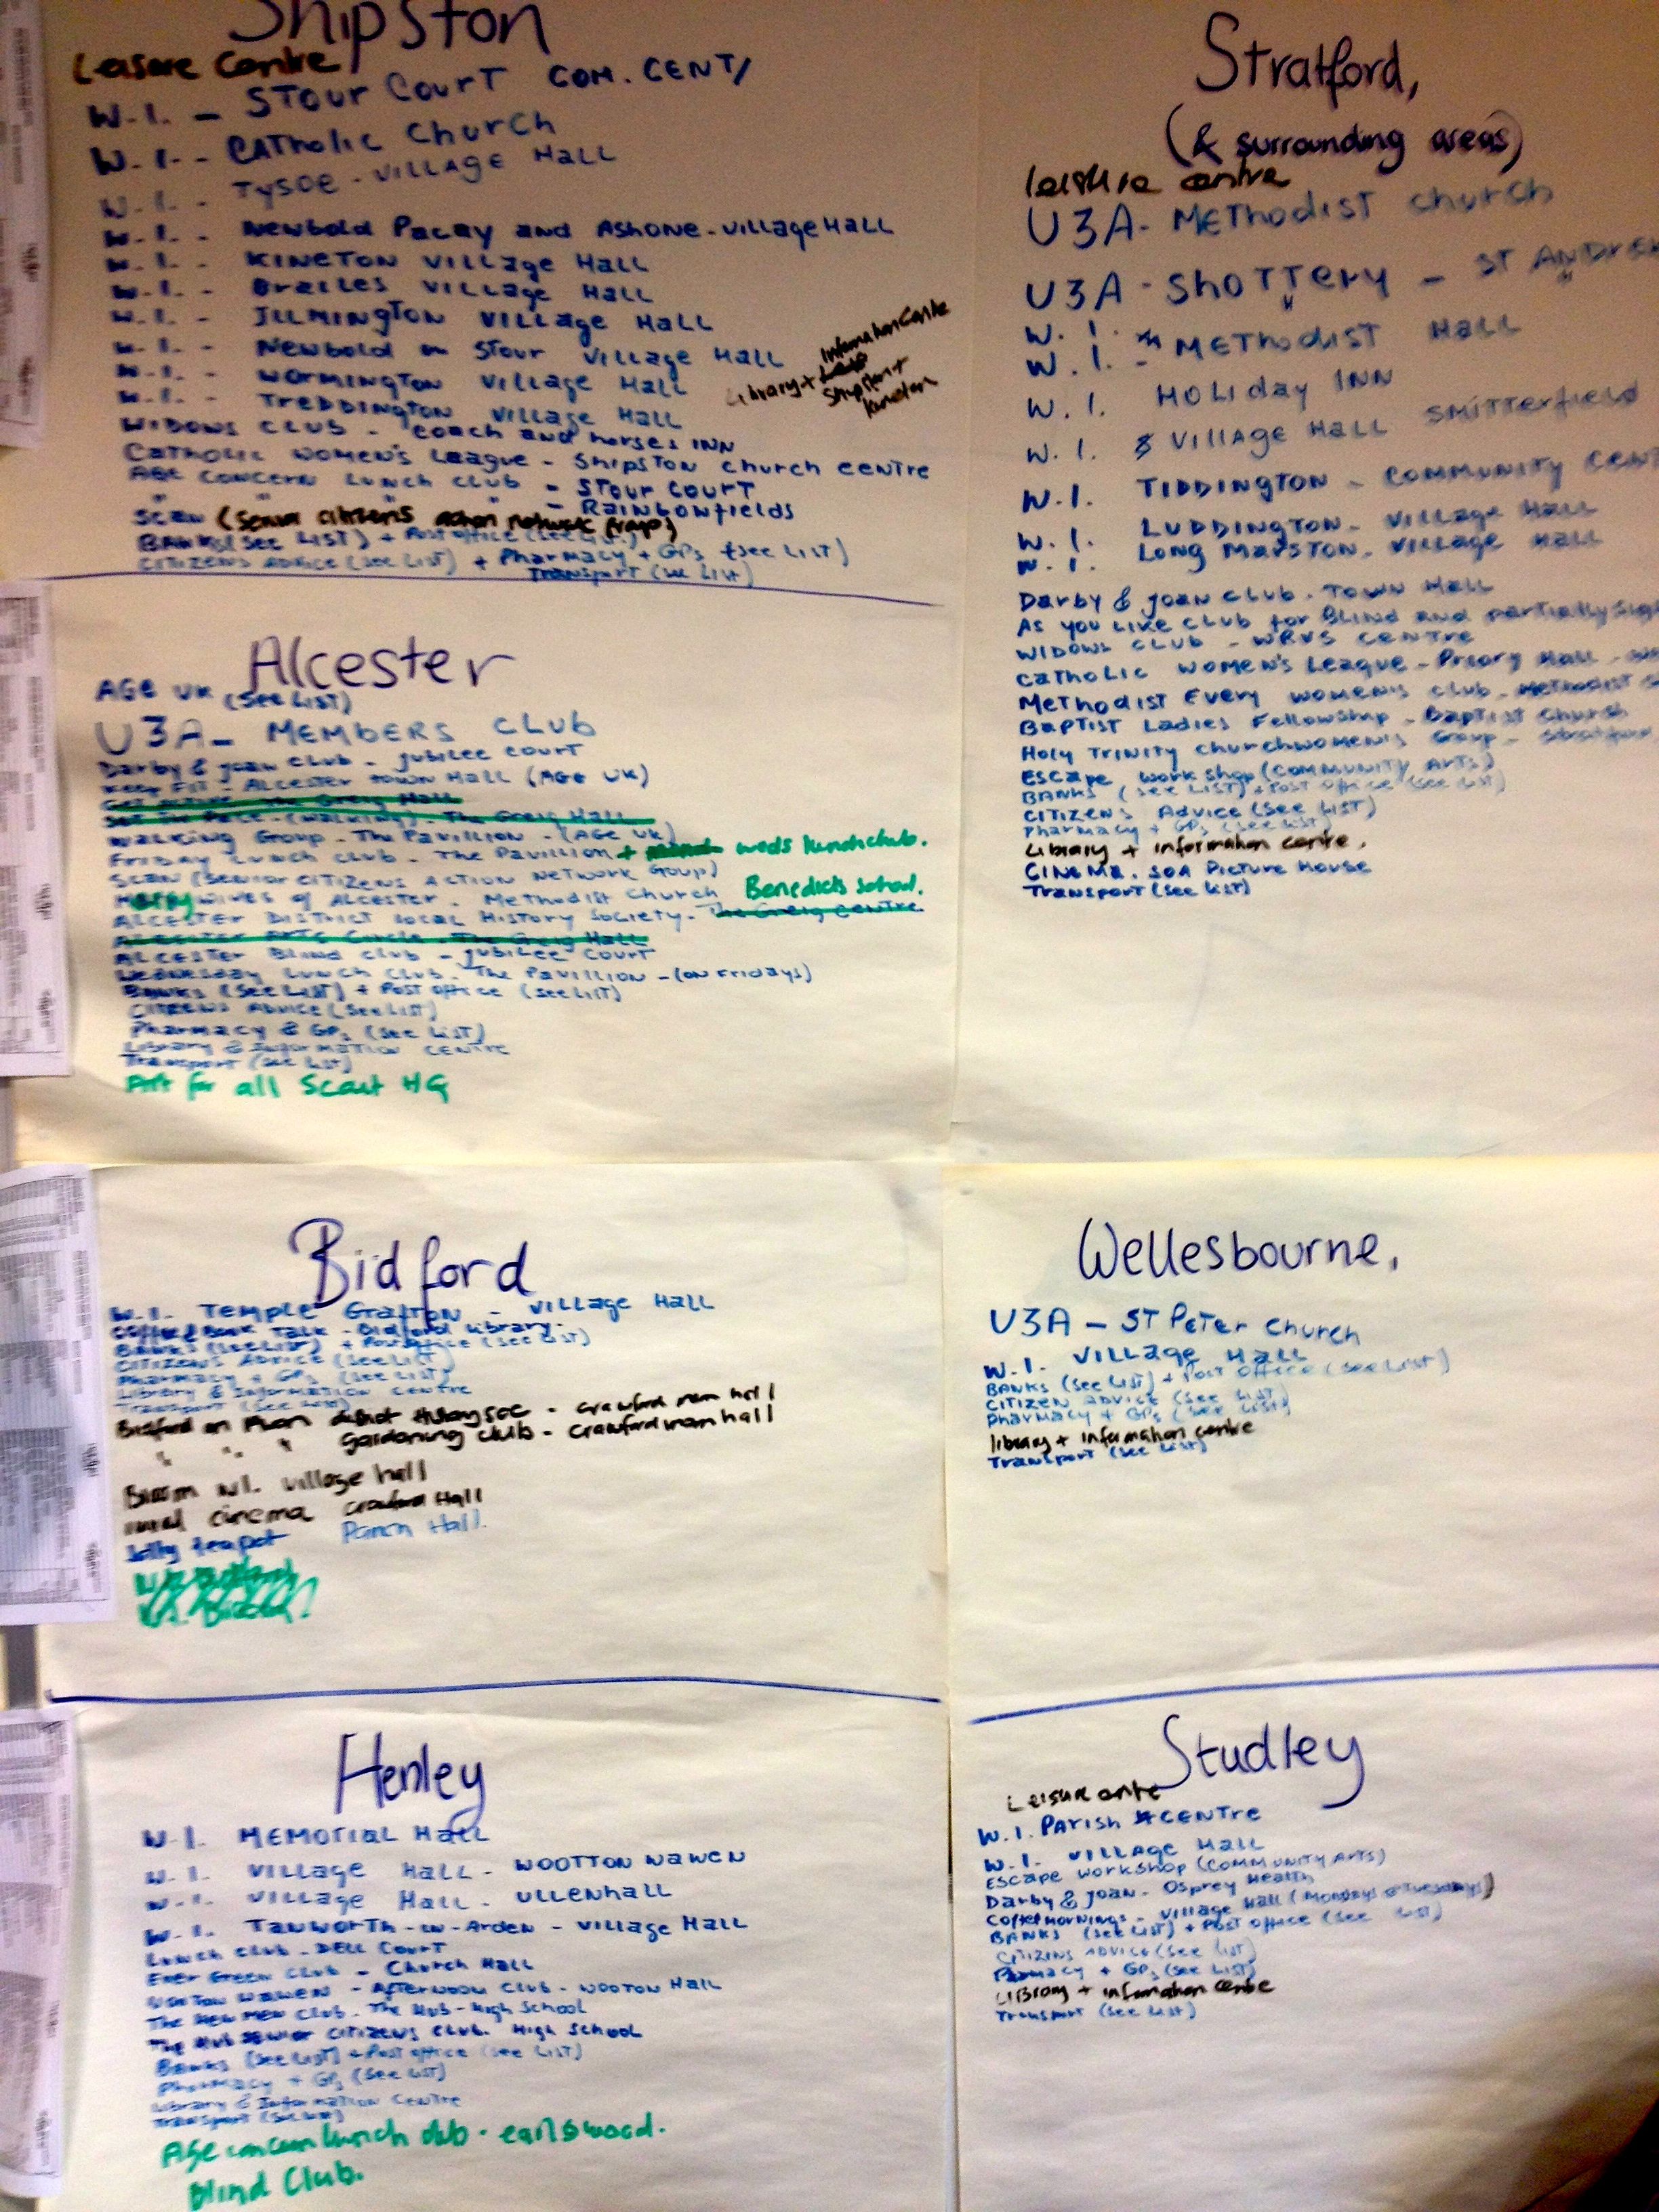 Shipston
Leisure Centre
W.I. - STOUR COURT COM. CENT/
W.I. - CATHOLIC CHURCH
W.I. - TYSOE - VILLAGE HALL
W.I. - NEWBOLD PACEY AND ASHONE - VILLAGE HALL
W.I. - KINETON VILLAGE HALL
W.I. - BRAILES VILLAGE HALL
W.I. - ILLMINGTON VILLAGE HALL
W.I. - NEWBOLD ON STOUR VILLAGE HALL
W.I. - WORMINGTON VILLAGE HALL
W.I. - TREDDINGTON VILLAGE HALL
Library + Information Centre
Shipston +
Kineton
WIDOWS CLUB - COACH AND HORSES INN
CATHOLIC WOMEN'S LEAGUE - SHIPSTON CHURCH CENTRE
AGE CONCERN LUNCH CLUB - STOUR COURT
" " " " - RAINBOWFIELDS
SCAN (Senior citizens action network group)
BANKS (SEE LIST) + POST OFFICE (SEE LIST)
CITIZENS ADVICE (SEE LIST) + PHARMACY + GPs (SEE LIST)
TRANSPORT (SEE LIST)
Alcester
AGE UK (SEE LIST)
U3A - MEMBERS CLUB
DARBY & JOAN CLUB - JUBILEE COURT
KEEP FIT - ALCESTER TOWN HALL (AGE UK)
GET ACTIVE - THE GREIG HALL
SET THE PACE - (WALKING) - THE GREIG HALL
WALKING GROUP - THE PAVILLION - (AGE UK)
FRIDAY LUNCH CLUB - THE PAVILLION + weds lunchclub.
SCAN (SENIOR CITIZENS ACTION NETWORK GROUP)
MERRY WIVES OF ALCESTER - METHODIST CHURCH
ALCESTER DISTRICT LOCAL HISTORY SOCIETY - THE GREIG CENTRE Benedicts school.
ALCESTER ARTS CIRCLE - THE GREIG HALL
ALCESTER BLIND CLUB - JUBILEE COURT
WEDNESDAY LUNCH CLUB - THE PAVILLION - (ON FRIDAYS)
BANKS (SEE LIST) + POST OFFICE (SEE LIST)
CITIZENS ADVICE (SEE LIST)
PHARMACY & GPs (SEE LIST)
LIBRARY & INFORMATION CENTRE
TRANSPORT (SEE LIST)
Art for all Scout HQ
Stratford,
(& surrounding areas)
leisure centre
U3A - METHODIST CHURCH
U3A - SHOTTERY - ST ANDREW
W.I. " "
W.I. - METHODIST HALL
W.I. HOLIDAY INN
W.I. VILLAGE HALL SNITTERFIELD
W.I. TIDDINGTON - COMMUNITY CENT
W.I. LUDDINGTON - VILLAGE HALL
W.I. LONG MARSTON - VILLAGE HALL
DARBY & JOAN CLUB - TOWN HALL
AS YOU LIKE CLUB FOR BLIND AND PARTIALLY
WIDOWS CLUB - WRVS CENTRE
CATHOLIC WOMEN'S LEAGUE - PRIORY HALL
METHODIST EVERY WOMENS CLUB - METHODIST
BAPTIST LADIES FELLOWSHIP - BAPTIST CHURCH
HOLY TRINITY CHURCHWOMEN'S GROUP -
ESCAPE WORKSHOP (COMMUNITY ARTS)
BANKS (SEE LIST) + POST OFFICE (SEE LIST)
CITIZENS ADVICE (SEE LIST)
PHARMACY + GPs (SEE LIST)
Library + information centre.
CINEMA - SOA PICTURE HOUSE
TRANSPORT (SEE LIST)
Bidford
W.I. TEMPLE GRAFTON - VILLAGE HALL
COFFEE & BOOK TALK - BIDFORD LIBRARY.
BANKS (SEE LIST) + POST OFFICE (SEE LIST)
CITIZENS ADVICE (SEE LIST)
PHARMACY + GPs (SEE LIST)
LIBRARY & INFORMATION CENTRE
TRANSPORT (SEE LIST)
Bidford on Avon district history soc - crawford mem hall
" " " gardening club - crawford mem hall
W.I. village hall
rural cinema Crawford Hall
Jolly teapot Parish Hall.
Wellesbourne,
U3A - ST PETER CHURCH
W.I. VILLAGE HALL
BANKS (SEE LIST) + POST OFFICE (SEE LIST)
CITIZEN ADVICE (SEE LIST)
PHARMACY + GPs (SEE LIST)
library + information centre
TRANSPORT (SEE LIST)
Henley
W.I. MEMORIAL HALL
W.I. VILLAGE HALL - WOOTTON WAWEN
W.I. VILLAGE HALL - ULLENHALL
W.I. TANWORTH-IN-ARDEN - VILLAGE HALL
LUNCH CLUB - DELL COURT
EVER GREEN CLUB - CHURCH HALL
WOOTON WAWEN - AFTERNOON CLUB - WOOTON HALL
THE NEW MEN CLUB - THE HUB - HIGH SCHOOL
THE HUB SENIOR CITIZENS CLUB - HIGH SCHOOL
BANKS (SEE LIST) + POST OFFICE (SEE LIST)
PHARMACY + GPs (SEE LIST)
LIBRARY & INFORMATION CENTRE
TRANSPORT (SEE LIST)
Age concern lunch club - earlswood.
Blind Club.
Studley
Leisure centre
W.I. PARISH CENTRE
W.I. VILLAGE HALL
ESCAPE WORKSHOP (COMMUNITY ARTS)
DARBY & JOAN - OSPREY HEALTH
COFFEE MORNINGS - VILLAGE HALL (MONDAYS & TUESDAYS)
BANKS (SEE LIST) + POST OFFICE (SEE LIST)
CITIZENS ADVICE (SEE LIST)
PHAMACY + GPs (SEE LIST)
LIBRARY + information centre
TRANSPORT (SEE LIST)